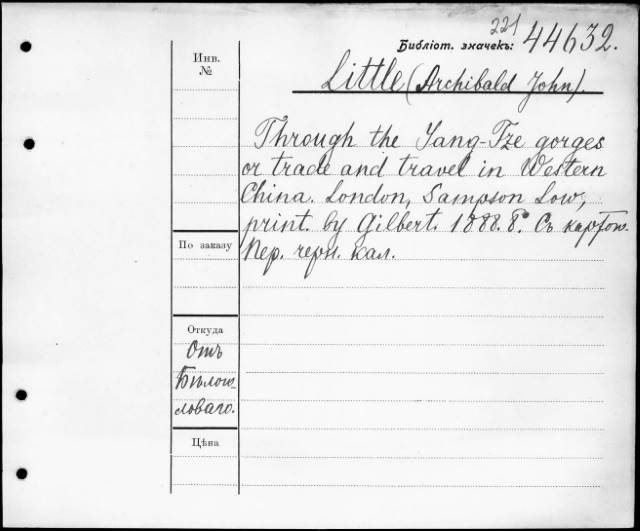 221
Библiот. значекъ: 44632.
Инв.
№
Little (Archibald John).
Through the Yang-Tze gorges
or trade and travel in Western
China. London, Sampson Low,
print. by Gilbert. 1888. 8° Съ картою.
Пер. черн. кал.
По заказу
Откуда
Отъ
Бѣлого-
ловаго.
Цѣна